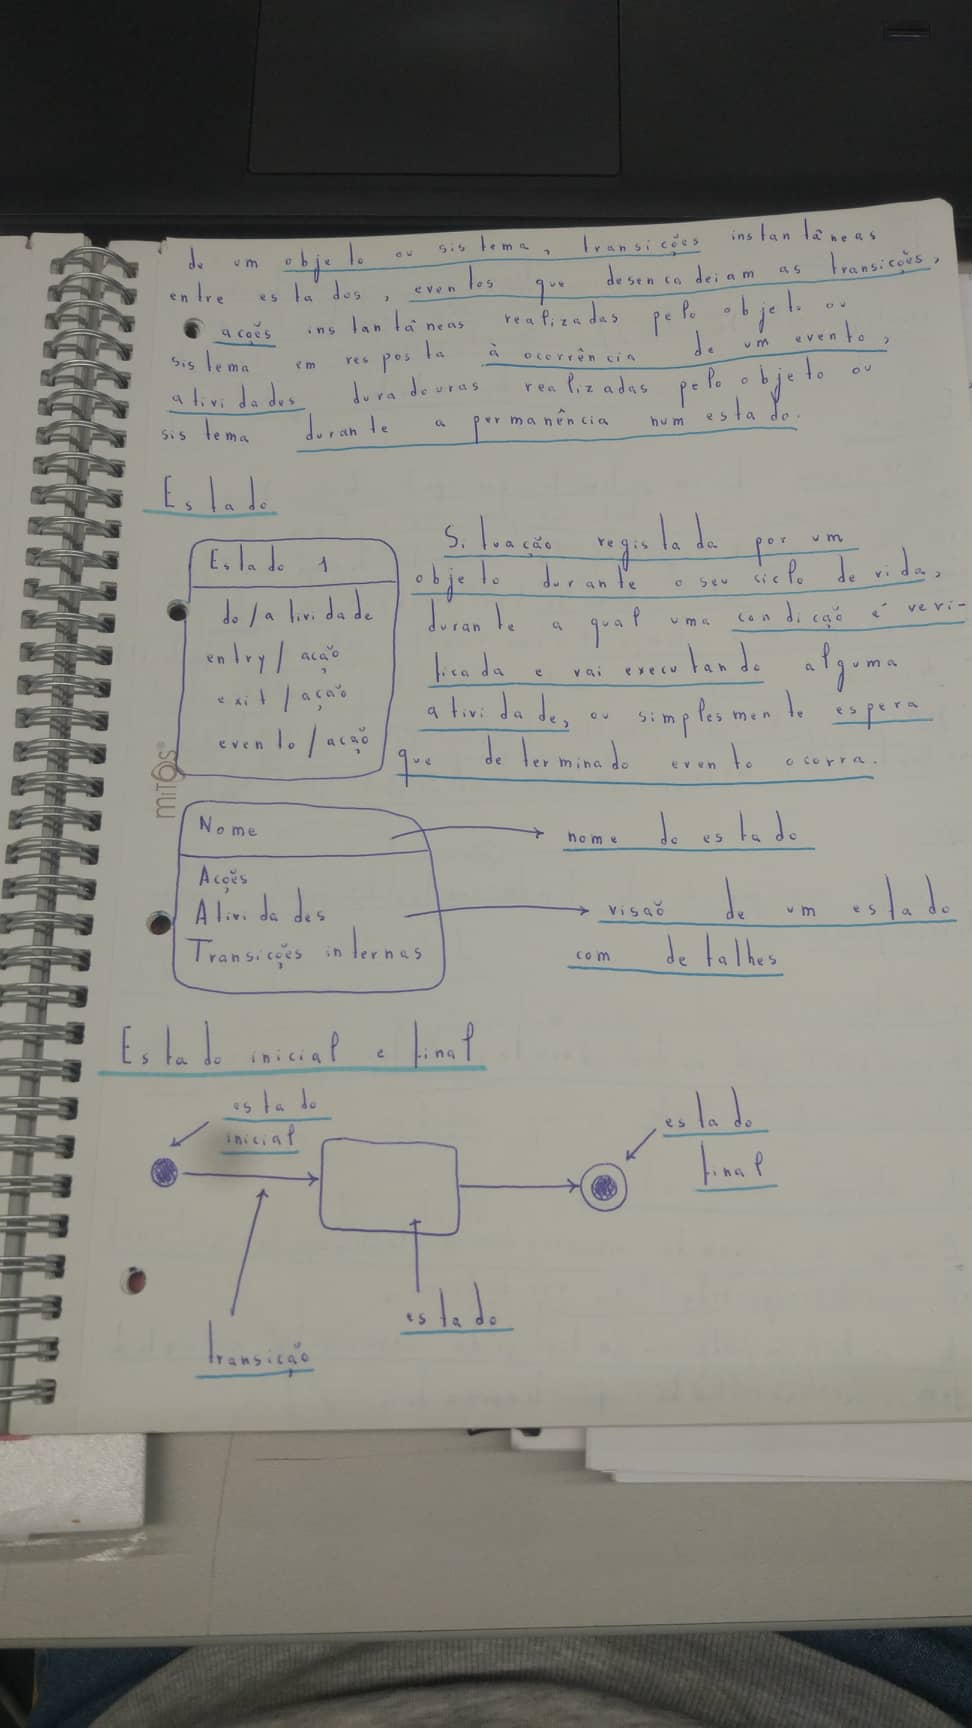 de um objeto ou sistema, transições instantâneas
entre estados, eventos que desencadeiam as transições,
ações instantâneas realizadas pelo objeto ou
sistema em resposta à ocorrência de um evento,
atividades duradouras realizadas pelo objeto ou
sistema durante a permanência num estado.
Estado
Estado 1
do/atividade
entry/ação
exit/ação
evento/ação
Situação registada por um
objeto durante o seu ciclo de vida,
durante a qual uma condição é veri-
ficada e vai executando alguma
atividade, ou simplesmente espera
que determinado evento ocorra.
mitos®
Nome
Ações
Atividades
Transições internas
nome do estado
visão de um estado
com detalhes
Estado inicial e final
estado
inicial
estado
final
estado
transição